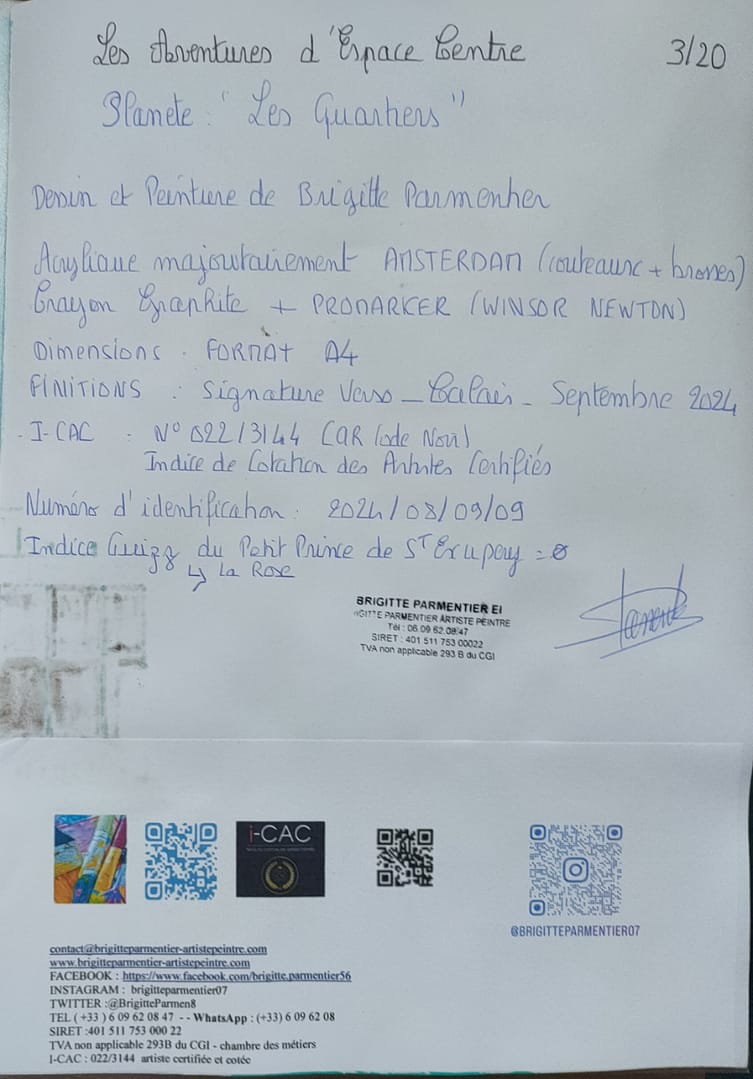 Les Aventures d'Espace Centre 3/20
Planète : "Les Quartiers"
Dessin et Peinture de Brigitte Parmentier
Acrylique majoritairement AMSTERDAM (couteaux + brosses)
Crayon Graphite + PROMARKER (WINSOR NEWTON)
Dimensions : FORMAT A4
FINITIONS : Signature Verso - Calais - Septembre 2024
. I-CAC : N° 022/3144 CAR (ode Noir)
Indice de Cotation des Artistes Certifiés
Numéro d'identification : 2024/08/09/09
Indice du Petit Prince de St Exupery = ø
↳ La Rose
BRIGITTE PARMENTIER EI
IGITTE PARMENTIER ARTISTE PEINTRE
Tél : 06.09.62.08.47
SIRET : 401 511 753 00022
TVA non applicable 293 B du CGI
i-CAC
@BRIGITTEPARMENTIER07
contact@brigitteparmentier-artistepeintre.com
www.brigitteparmentier-artistepeintre.com
FACEBOOK : https://www.facebook.com/brigitte.parmentier56
INSTAGRAM : brigitteparmentier07
TWITTER :@BrigitteParmen8
TEL (+33 ) 6 09 62 08 47 - - WhatsApp : (+33) 6 09 62 08
SIRET :401 511 753 000 22
TVA non applicable 293B du CGI - chambre des métiers
I-CAC : 022/3144 artiste certifiée et cotée